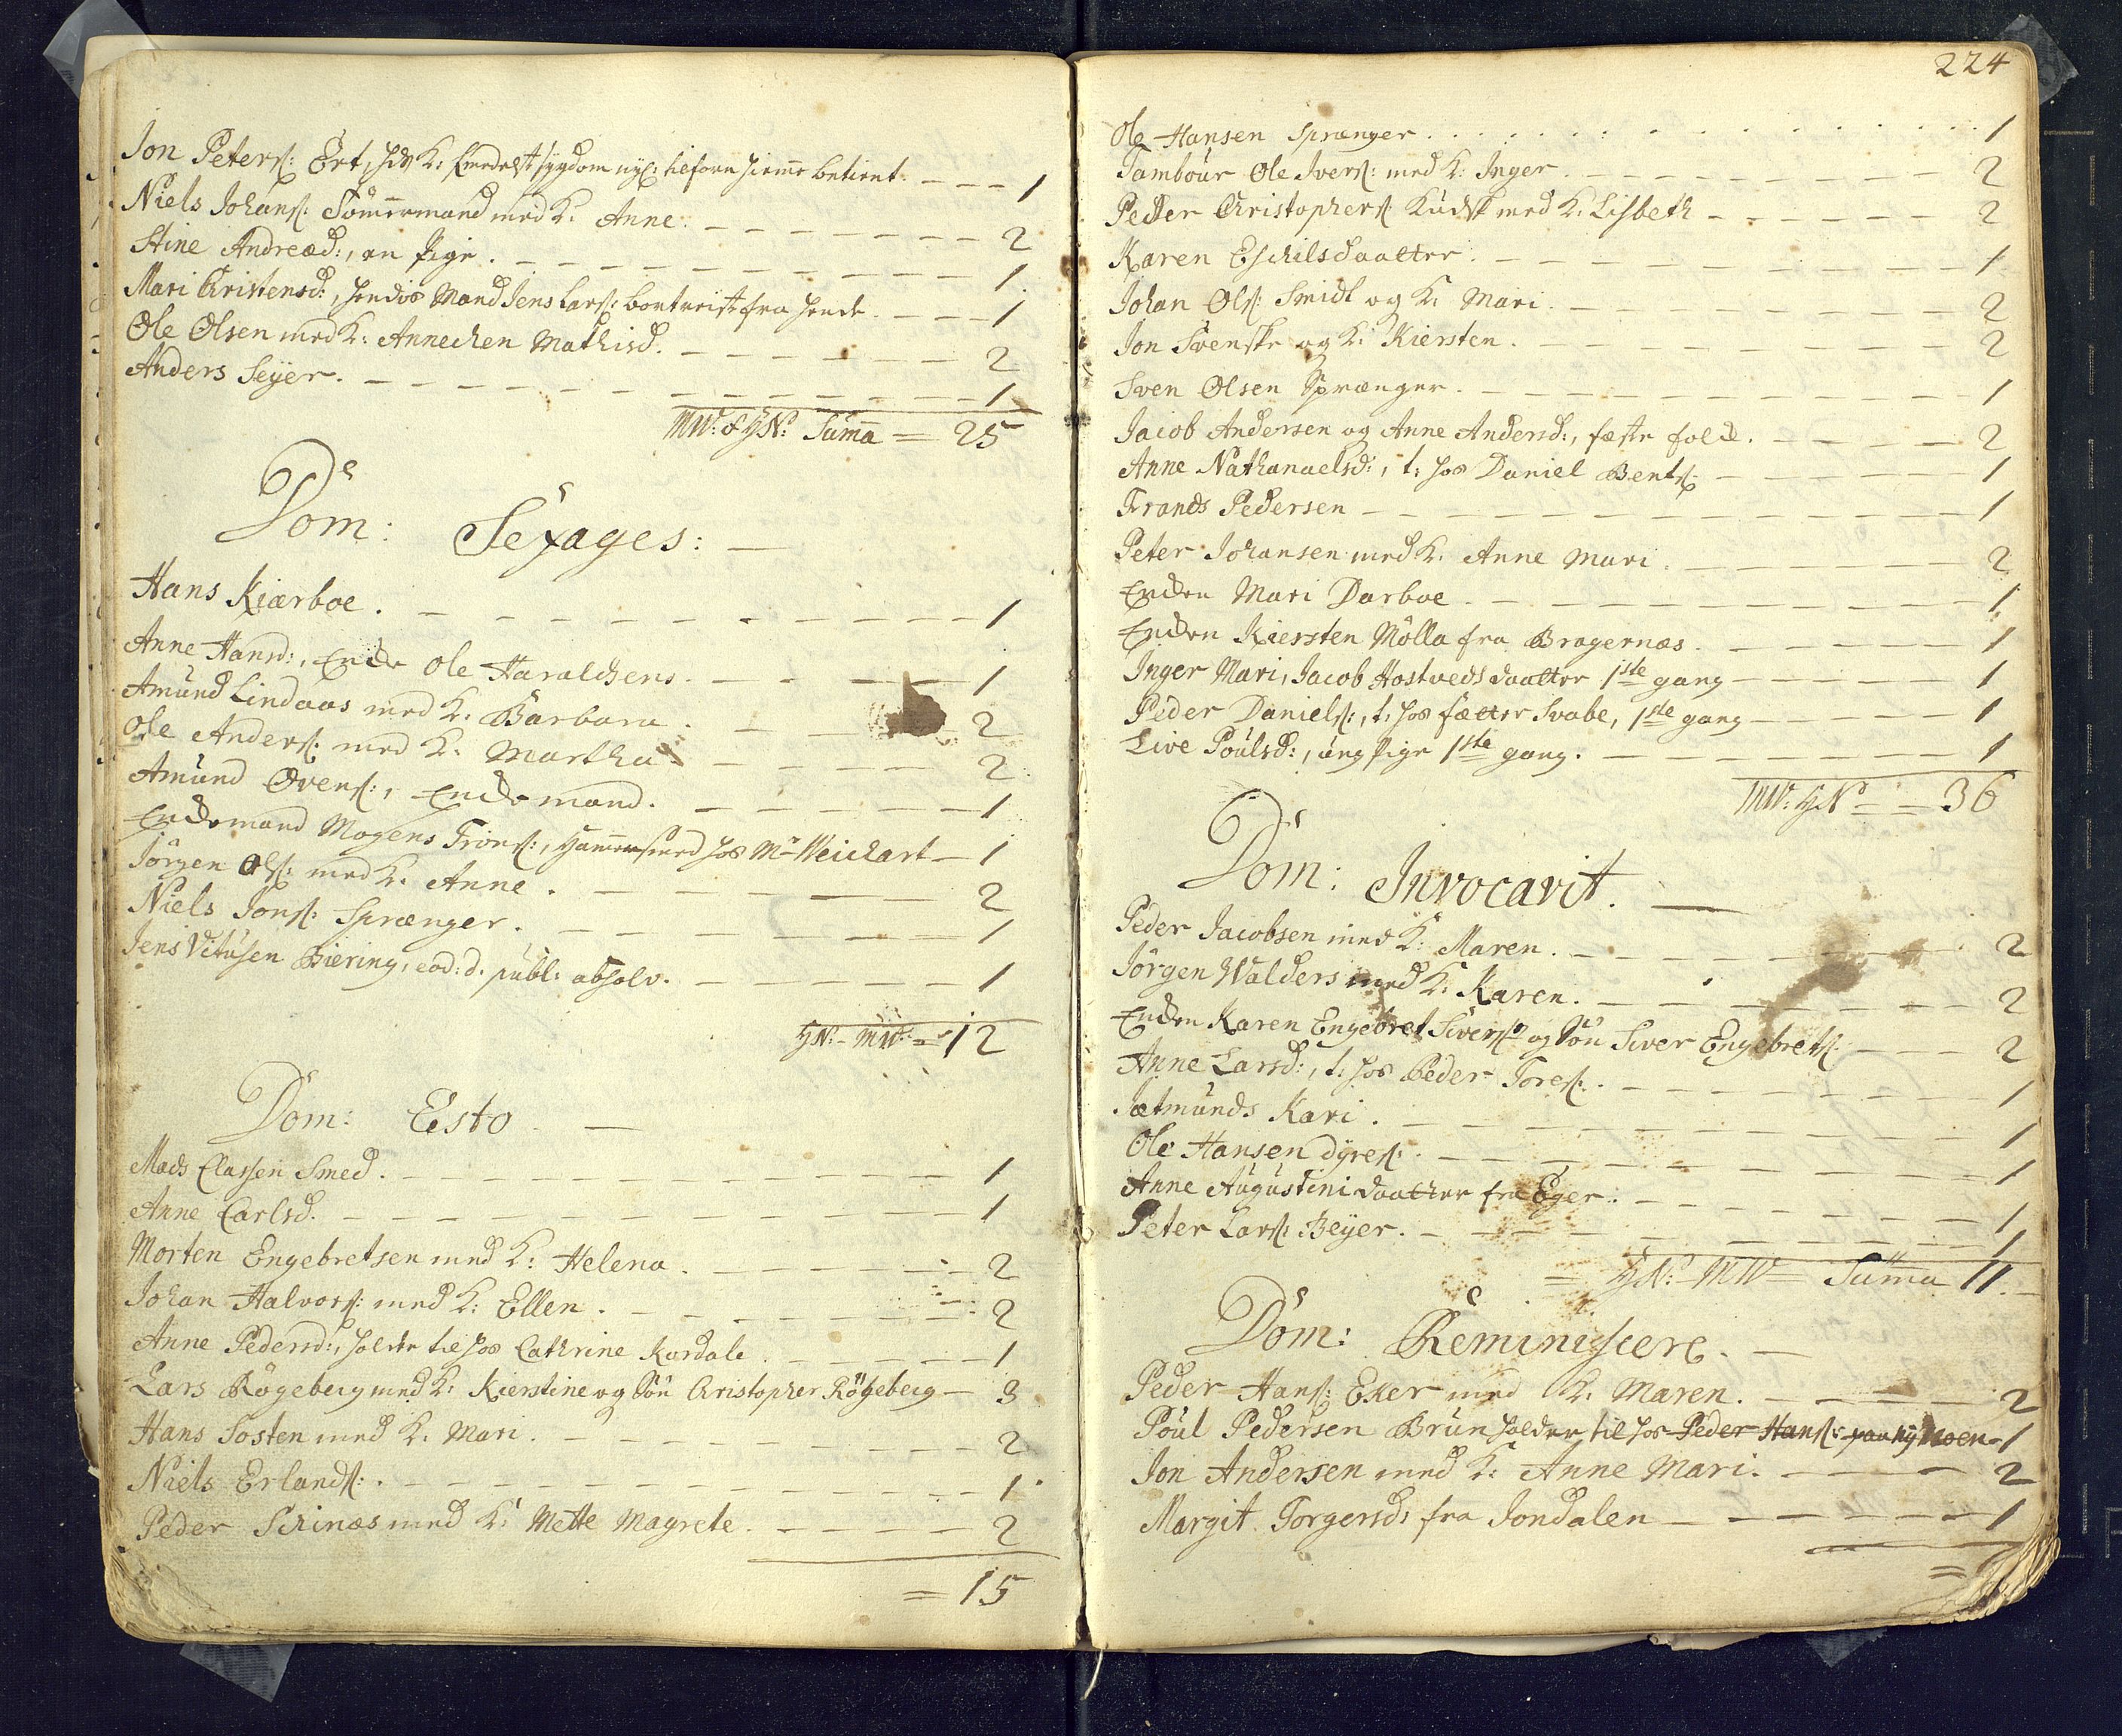 Jon Peters: Ört, hds K: formedelst sygdom nyl: tilforn hiemme betient. - - - 1
Niels Johans: Tömmermand med K. Anne. - - - 2
Stine Andreæd:, en Pige. - - - 1
Mari Christensd:, hendis Mand Jens Lars: bortreist fra hende. - - - 1
Ole Olsen med K: Annechen Mathisd. - - - 2
Anders Seÿer. - - - 1
MW: & HN: Suma = 25
Dom: Sexages: —
Hans Kiærboe. - - - 1
Anne Hansd:, Enke Ole Haraldsens. - - - 1
Amund Lindaas med K. Barbara. - - - 2
Ole Anders: med K. Martha - - - 2
Amund Ovens:, Enkemand. - - - 1
Enkemand Mogens Trons:, Hammersmed hos Mr Weichart - 1
Jörgen Ols: med K. Anne. - - - 2
Niels Jons: Sprænger. - - - 1
Jens Vitusen Biering, eod: d. publ: absolv. - - - 1
HN: - MW: = 12
Dom: Esto —
Mads Classen Smed. - - - 1
Anne Carlsd. - - - 1
Morten Engebretsen med K: Helena. - - - 2
Johan Halvors: med K: Ellen. - - - 2
Anne Pedersd:, holder til hos Cathrine Kordale. - - - 1
Lars Rögeberg med K: Kierstine og Sön Christopher Rögeberg - 3
Hans Sosten med K. Mari. - - - 2
Niels Erlands:. - - - 1
Peder Schinæs med K: Mette Magrete. - - - 2
= 15
224
Ole Hansen Sprænger. . . . 1
Tambour Ole Ivers: med K: Inger. - - - 2
Peder Christophers: Kudsk med K: Lisbeth - - - 2
Karen Eschilsdaatter. - - - 1
Johan Ols: Smidt og K: Mari. - - - 2
Jon Svenske og K: Kiersten. - - - 2
Sven Olsen Sprænger. - - - 1
Jacob Andersen og Anne Andersd:, fæste folk. - - - 2
Anne Nathanaelsd:, t: hos Daniel Bents: - - - 1
Frands Pedersen - - - 1
Peter Johansen med K: Anne Mari. - - - 2
Enken Mari Darboe. - - - 1
Enken Kiersten Mölla fra Bragernæs. - - - 1
Inger Mari, Jacob Hostveds daatter 1ste gang - - - 1
Peder Daniels:, t: hos fætter Svabe, 1ste gang - - - 1
Live Poulsd:, ung Pige 1ste gang. - - - 1
MW: HN = = 36
Dom: Invocavit. —
Peder Jacobsen med K: Maren. - - - 2
Jörgen Walders med K: Karen. - - - 2
Enken Karen Engebret Sivers: og Sön Siver Engebrets: - - - 2
Anne Larsd:, t: hos Peder Tores:. - - - 1
Jætmunds Kari. - - - 1
Ole Hansen dÿres:. - - - 1
Anne Augustini daatter fra Eger. - - - 1
Peter Lars: Beÿer. - - - 1
= HN: - MW = Suma 11.
Dom: Reminiscere. —
Peder Hans: Eker med K: Maren. - - - 2
Poul Pedersen Brun holder til hos Peder Hans: paa nÿ Moen - 1
Jon Andersen med K: Anne Mari. - - - 2
Margit Torgersd: fra Jondalen - - - 1
=